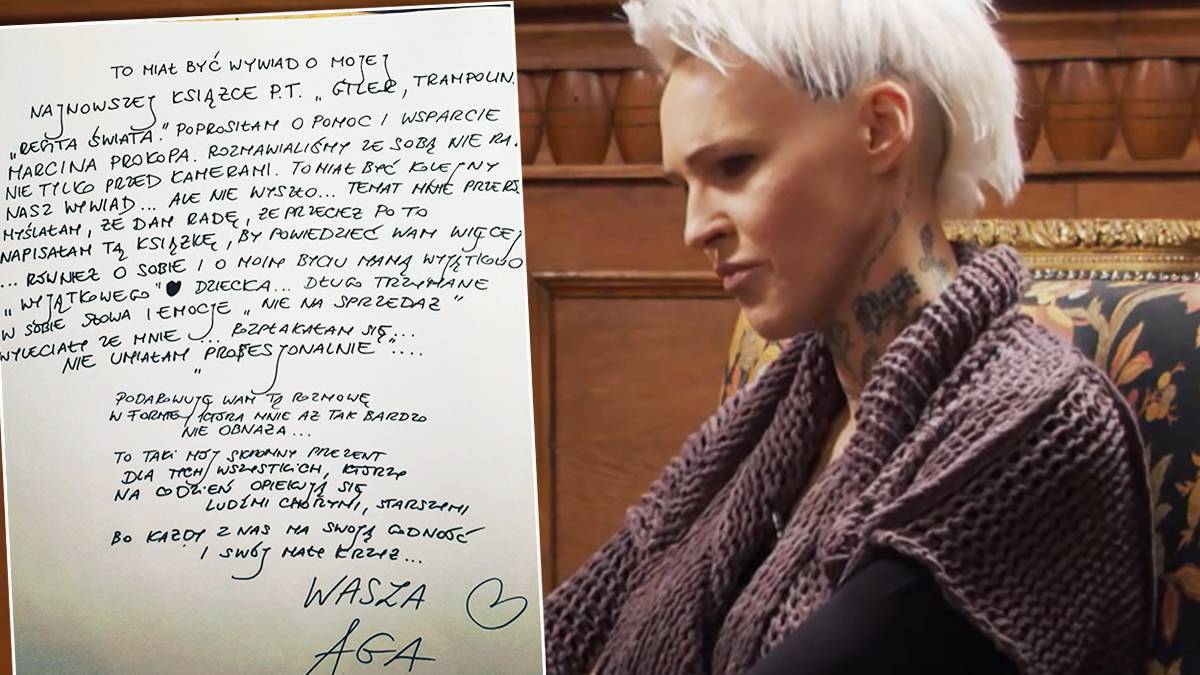 TO MIAŁ BYĆ WYWIAD O MOJEJ
NAJNOWSZEJ KSIĄŻCE P.T. „GTLER, TRAMPOLIN.
„RESZTA ŚWIATA." POPROSIŁAM O POMOC I WSPARCIE
MARCINA PROKOPA. ROZMAWIALIŚMY ZE SOBĄ NIE RA.
NIE TYLKO PRZED KAMERAMI. TO MIAŁ BYĆ KOLEJNY
NASZ WYWIAD... ALE NIE WYSZŁO... TEMAT MNIE PRZERS
MYŚLAŁAM, ŻE DAM RADĘ, ŻE PRZECIEŻ PO TO
NAPISAŁAM TĄ KSIĄŻKĘ, BY POWIEDZIEĆ WAM WIĘCEJ
... RÓWNIEŻ O SOBIE I O MOIM BYCIU MAMĄ WYJĄTKOWO
„WYJĄTKOWEGO" DZIECKA... DŁUGO TRZYMANE
W SOBIE SŁOWA I EMOCJE „NIE NA SPRZEDAŻ"
WYLECIAŁY ZE MNIE... ROZPŁAKAŁAM SIĘ...
NIE UMIAŁAM „PROFESJONALNIE"....
PODAROWUJĘ WAM TĄ ROZMOWĘ
W FORMIE, KTÓRA MNIE AŻ TAK BARDZO
NIE OBNAŻA...
TO TAKI MÓJ SKROMNY PREZENT
DLA TYCH WSZYSTKICH, KTÓRZY
NA CODZIEŃ OPIEKUJĄ SIĘ
LUDŹMI CHORYMI, STARSZYMI
BO KAŻDY Z NAS MA SWOJĄ GODNOŚĆ
I SWÓJ MAŁY KRZYŻ...
WASZA
AGA